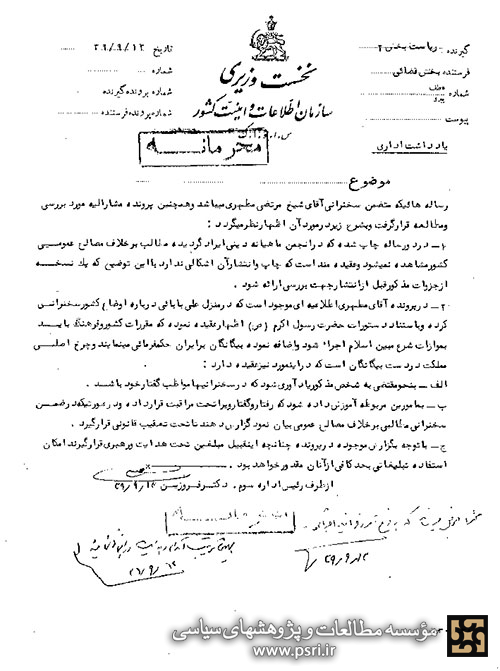 گیرنده - ریاست بخش ۲
فرستنده بخش قضائی
شماره عطف پیرو
پیوست
یادداشت اداری
نخست وزیری
سازمان اطلاعات و امنیت کشور
س.ا.و.ا.ک
تاریخ ۳۹/۹/۱۲
شماره
شماره پرونده گیرنده
شماره پرونده فرستنده
محرمانه
موضوع
رساله هائیکه متضمن سخنرانی آقای شیخ مرتضی مطهری میباشد و همچنین پرونده مشارالیه مورد بررسی
و مطالعه قرار گرفت و بشرح زیر در مورد آن اظهار نظر میگردد :
۱- در دو رساله چاپ شده که در انجمن ماهیانه دینی ایراد گردیده مطالب برخلاف مصالح عمومی
کشور مشاهده نمیشود و عقیده مند است که چاپ و انتشار آن اشکالی ندارد با این توضیح که یک نسخه
از جزوات مذکور قبل از انتشار جهت بررسی ارائه شود .
۲- در پرونده آقای مطهری اعلامیه ای موجود است که در منزل علی بابائی درباره اوضاع کشور سخنرانی
کرده و باستناد دستورات حضرت رسول اکرم (ص) اظهار عقیده نموده که مقررات کشور و فرهنگ باید
بموازات شرع مبین اسلام اجراء شود و اضافه نموده بیگانگان بر ایران حکمفرمائی مینمایند و چرخ اصلی
مملکت در دست بیگانگان است که در اینمورد نیز عقیده دارد :
الف - بنحو مقتضی به شخص مذکور یادآوری شود که در سخنرانیها مواظب گفتار خود باشد .
ب - بمامورین مربوطه آموزش داده شود که رفتار و گفتار ویرا تحت مراقبت قرار داده و در صورتیکه در ضمن
سخنرانی مطالبی برخلاف مصالح عمومی بیان نمود گزارش دهند تا تحت تعقیب قانونی قرار گیرد .
ج - با توجه بگزارش موجود در پرونده چنانچه اینقبیل مبلغین تحت هدایت و رهبری قرار گیرند امکان
استفاده تبلیغاتی بحد کافی از آنان مقدور خواهد بود .
از طرف رئیس اداره سوم . دکتر فروزین ۳۹/۹/۱۲
۳۹/۹/۱۲
مؤسسه مطالعات و پژوهشهای سیاسی
www.psri.ir